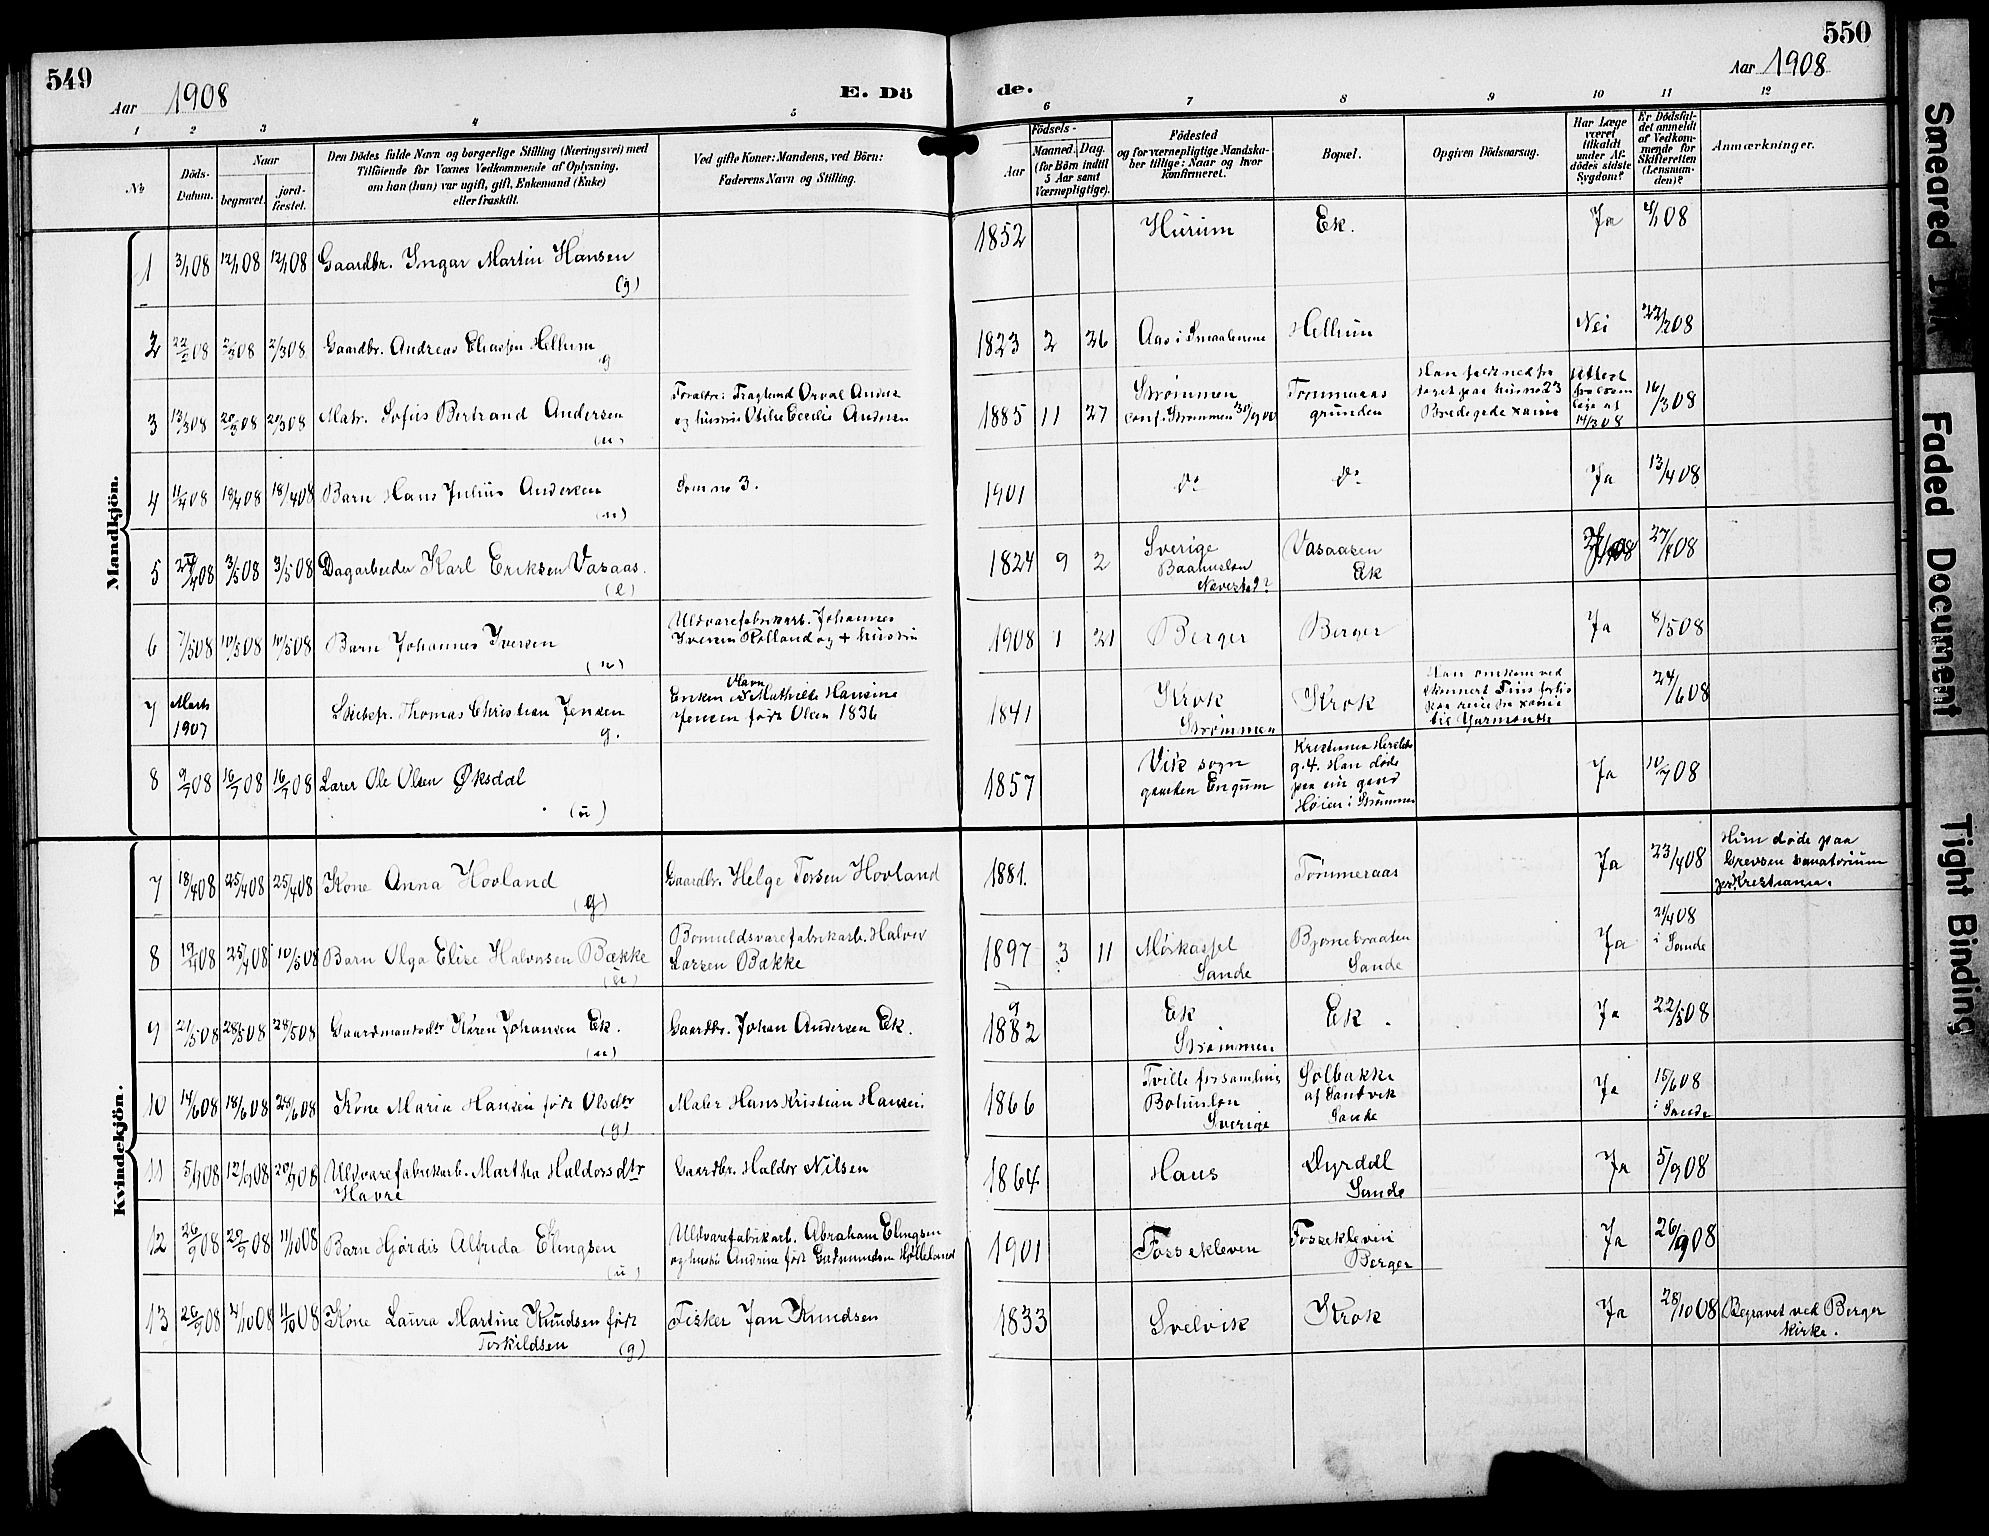 549
Aar 1908
E. Dö
de.
Aar 1908
550
1 2 3 4 5
6 7 8 9 10 11 12
No
Döds-Datum.
Naar
begravet.
jord-fæstet.
Den Dödes fulde Navn og borgerlige Stilling (Næringsvei) med
Tilföiende for Voxnes Vedkommende af Oplysning,
om han (hun) var ugift, gift, Enkemand (Enke)
eller fraskilt.
Ved gifte Koner: Mandens, ved Börn:
Faderens Navn og Stilling.
Födsels-
Aar
Maaned. Dag.
(for Börn indtil
5 Aar samt
Værnepligtige).
Födested
og for værnepligtige Mandska-
ber tillige: Naar og hvor
konfirmeret.
Bopæl.
Opgiven Dödsaarsag.
Har Læge
været
tilkaldt
under Af-
dödes sidste
Sygdom?
Er Dödsfal-
det anmeldt
af Vedkom-
mende for
Skifteretten
(Lensman-
den)?
Anmærkninger.
Mandkjön.
1 3/1 08 12/1 08 12/1 08 Gaardbr. Ingar Martin Hansen (g) 1852 Hurum Ek. Ja 4/1 08
2 22/2 08 2/3 08 2/3 08 Gaardbr. Andreas Eliassen Hellum g 1823 2 26 Aas i Smaalenene Hellum Nei 22/2 08
3 13/3 08 20/3 08 20/3 08 Matr. Sofus Bertrand Andersen (u)
og hustru Otilie Cecilie Andersen
1885 11 27 Strømmen
conf. Strømmen
Tømmeraas
grunden
Han faldt ned fra
16/3 08
14/3 08
4 11/4 08 18/4 08 18/4 08 Barn Hans Julius Andersen (u) Som no 3. 1901 do do Ja 13/4 08
5 3/5 08 3/5 08 Dagarbeider Karl Eriksen Vasaas. (e) 1824 9 2 Sverige
Baahuslen
Vasaasen
Ek
27/4 08
6 7/5 08 10/5 08 10/5 08 Barn Johannes Iversen (u)
Uldvarefabrikarb. Johannes
Iversen Rolland og + hustru
1908 1 21 Berger Berger Ja 8/5 08
7 Marts
1907
Skibsfr. Thomas Christian Jensen g.
Enken er Mathilde Hansine
Jensen født Olsen 1836
1841 Krok
Strømmen
Krok
Han omkom ved
24/6 08
8 9/7 08 16/7 08 16/7 08 Lærer Ole Olsen Øksdal (u) 1857 Vik sogn
gaarden Engum
g. 4. Han døde
paa sin gaard
Høien i Strømmen
Ja 10/7 08
Kvindekjön.
7 18/4 08 25/4 08 25/4 08 Kone Anna Hovland (g) Gaardbr. Helge Torsen Hovland 1881. Tømmeraas Ja 23/4 08 Hun døde paa
Grevsen sanatorium
pr. Kristiania.
8 19/4 08 25/4 08 10/5 08 Barn Olga Elise Halvorsen Bække (u)
Bomuldsvarefabrikarb. Halvor
Larsen Bække
1897 3 11 Mørkassel
Sande
Bjørnebraaten
Sande
Ja 21/4 08
i Sande
9 21/5 08 28/5 08 28/5 08 Gaardmandsdtr Karen Johansen Ek. (u) Gaardbr. Johan Andersen Ek. 1882 Ek
Strømmen
Ek. Ja 22/5 08
10 14/6 08 18/6 08 28/6 08 Kone Maria Hansen født Olsdtr (g) Maler Hans Kristian Hansen. 1866 Tville forsamling
Bohuslen
Sverige
Solbakke
af Sandvik
Sande
Ja 15/6 08
i Sande
11 5/9 08 12/9 08 20/9 08 Uldvarefabrikarb. Martha Haldorsdtr
Havre
Gaardbr. Haldor Nilsen 1864 Haus Dyrdal
Sande
Ja 5/9 08
12 26/9 08 29/9 08 11/10 08 Barn Hjørdis Alfrida Elingsen (u)
Uldvarefabrikarb. Abraham Elingsen
og hustru Andrine født Gudmundsen Holleland
1901 Fossekleven Fossekleven
Berger
Ja 26/9 08
13 26/9 08 4/10 08 11/10 08 Kone Laura Martine Knudsen født
Torkildsen (g)
Fisker Jan Knudsen 1833 Svelvik Krok Ja 28/10 08 Begravet ved Berger
kirke.
Smeared Ink
Faded Document
Tight Binding